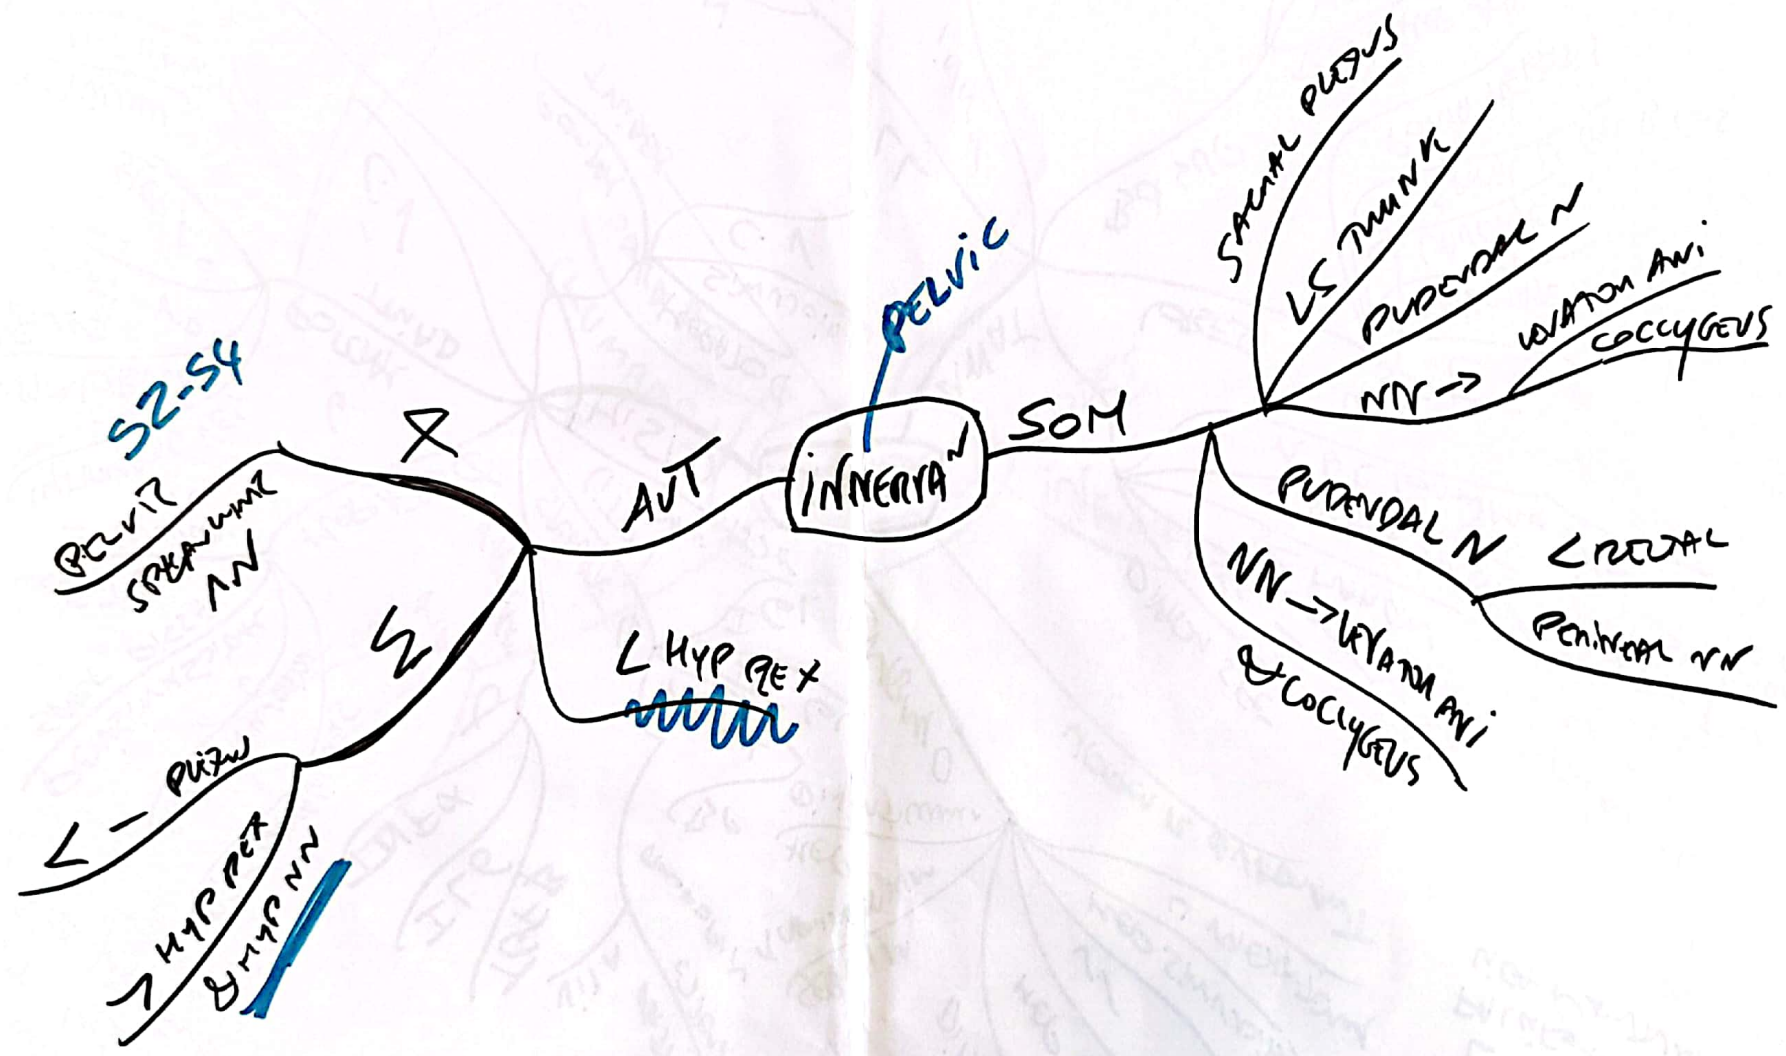 PELVIC
INNERVAN
SOM
SACRAL PLEXUS
LS TRUNK
PUDENDAL N
NN →
LEVATOR ANI
COCCYGEUS
PUDENDAL N
< RECTAL
PERINEAL NN
NN → LEVATOR ANI
& COCCYGEUS
AUT
S2-S4
PELVIC
SPLANCHNIC
NN
Σ
<
> HYP PEX
& HYP NN
< HYP PEX